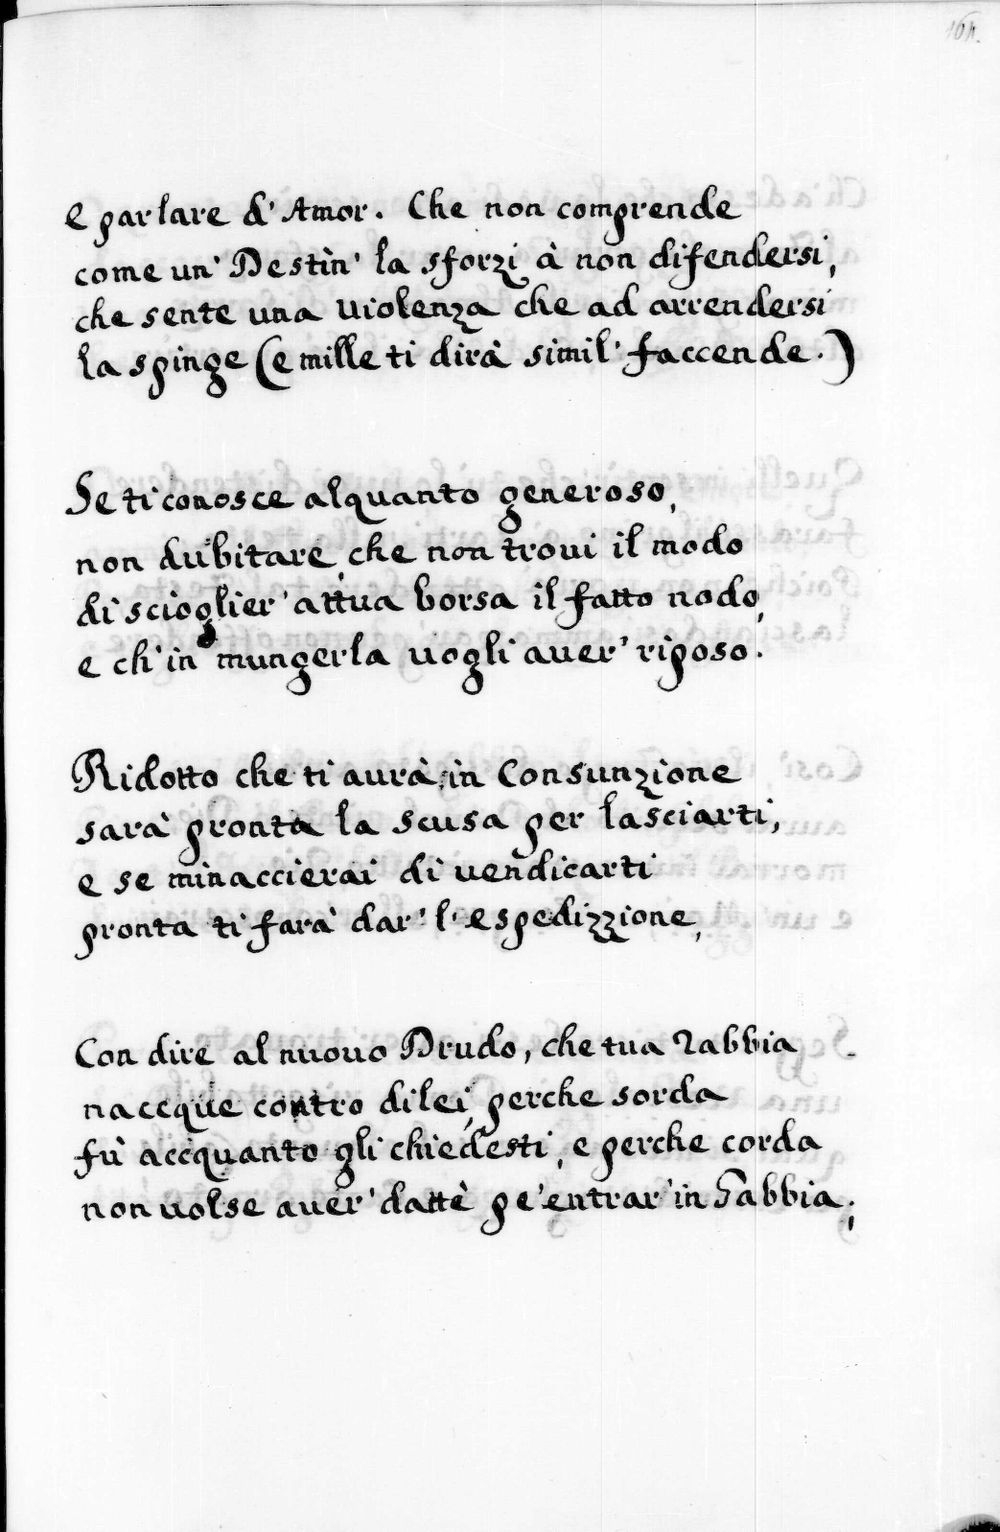 e parlare d' Amor. Che non comprende
come un' Destin' la sforzi à non difendersi,
che sente una violenza che ad arrendersi
la spinge (e mille ti dirà simil' faccende.)
Se ti conosce alquanto generoso,
non dubitare, che non troui il modo
di scioglier' attua borsa il fatto nodo,
e ch' in mungerla uogli auer' riposo.
Ridotto che ti aurà in Consunzione
sarà pronta la scusa per lasciarti,
e se minaccierai di uendicarti
pronta ti farà dar' l' espedizzione,
Con dire al nuouo Drudo, che tua Rabbia
naccque contro di lei, perche sorda
fù accquanto gli chiedesti, e perche corda
non uolse auer' dattè pe' entrar' in Gabbia;